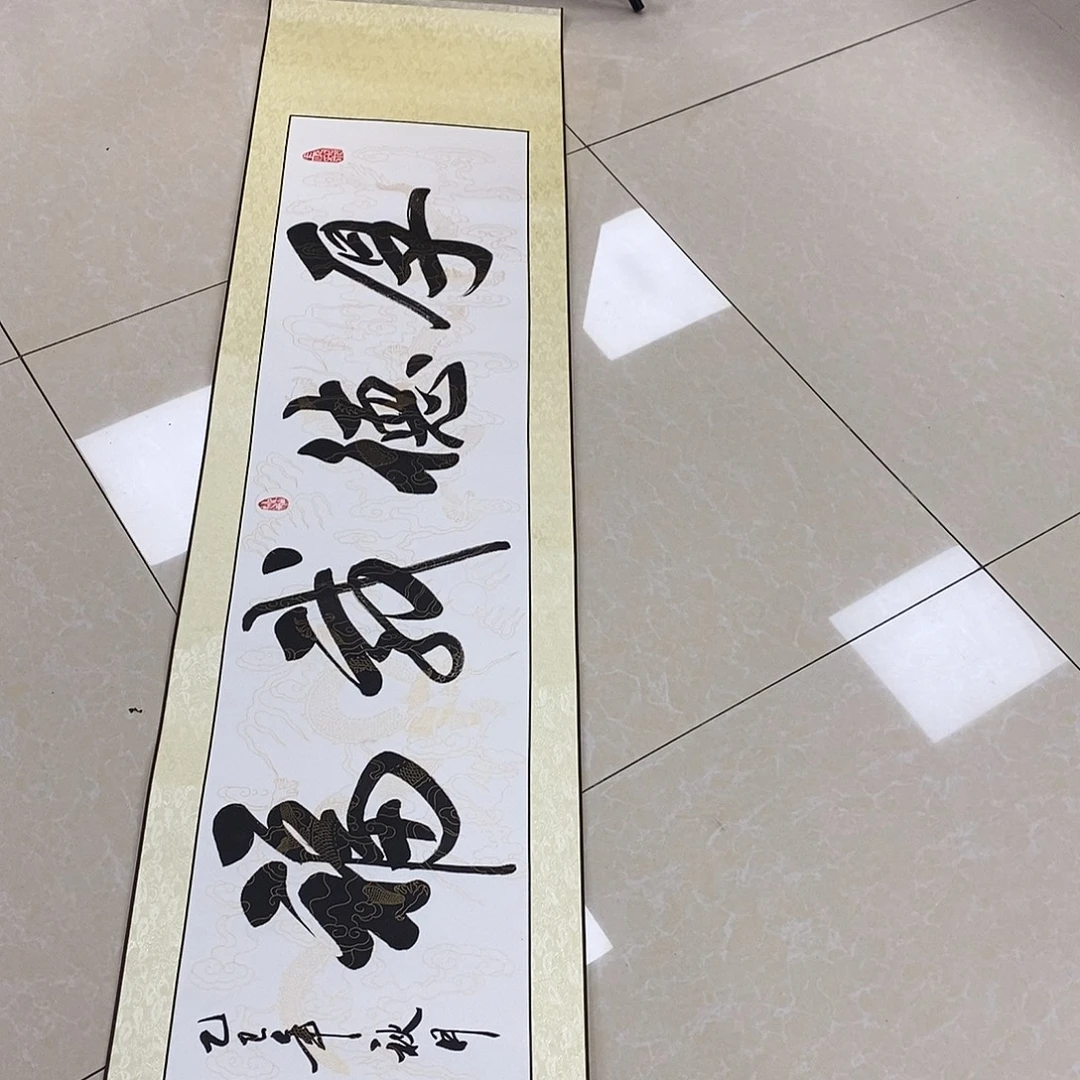 厚德载福
乙巳年秋月